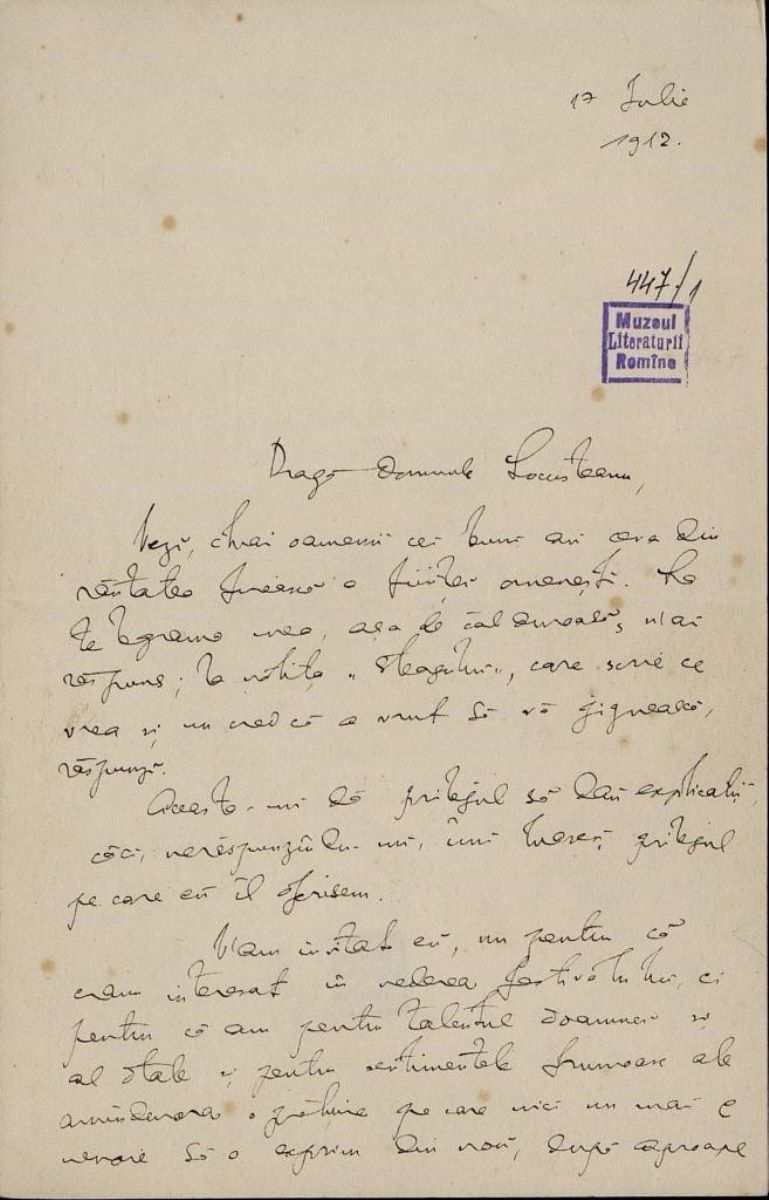 17 Iulie
1912.
447/1
Muzeul
Literaturii
Romîne
Dragă domnule Locusteanu,
Vezi, chiar oamenii cei buni au ceva din
răutatea firească a ființei omenești. La
telegrama mea, așa de călduroasă, n'ai
răspuns; la notița „Steagului", care scrie ce
vrea și nu cred că a vrut să vă jignească,
răspunzi.
Aceasta-mi dă prilejul să dau explicații,
căci, nerăspunzîndu-mi, îmi prilejul
pe care eu îl oferisem.
V'am invitat eu, nu pentru că
eram interesat în vederea festivalului, ci
pentru că am pentru talentul doamnei și
al d-tale și pentru sentimentele frumoase ale
amîndurora o prețuire pe care nici nu mai e
nevoie să o exprim din nou, după aproape